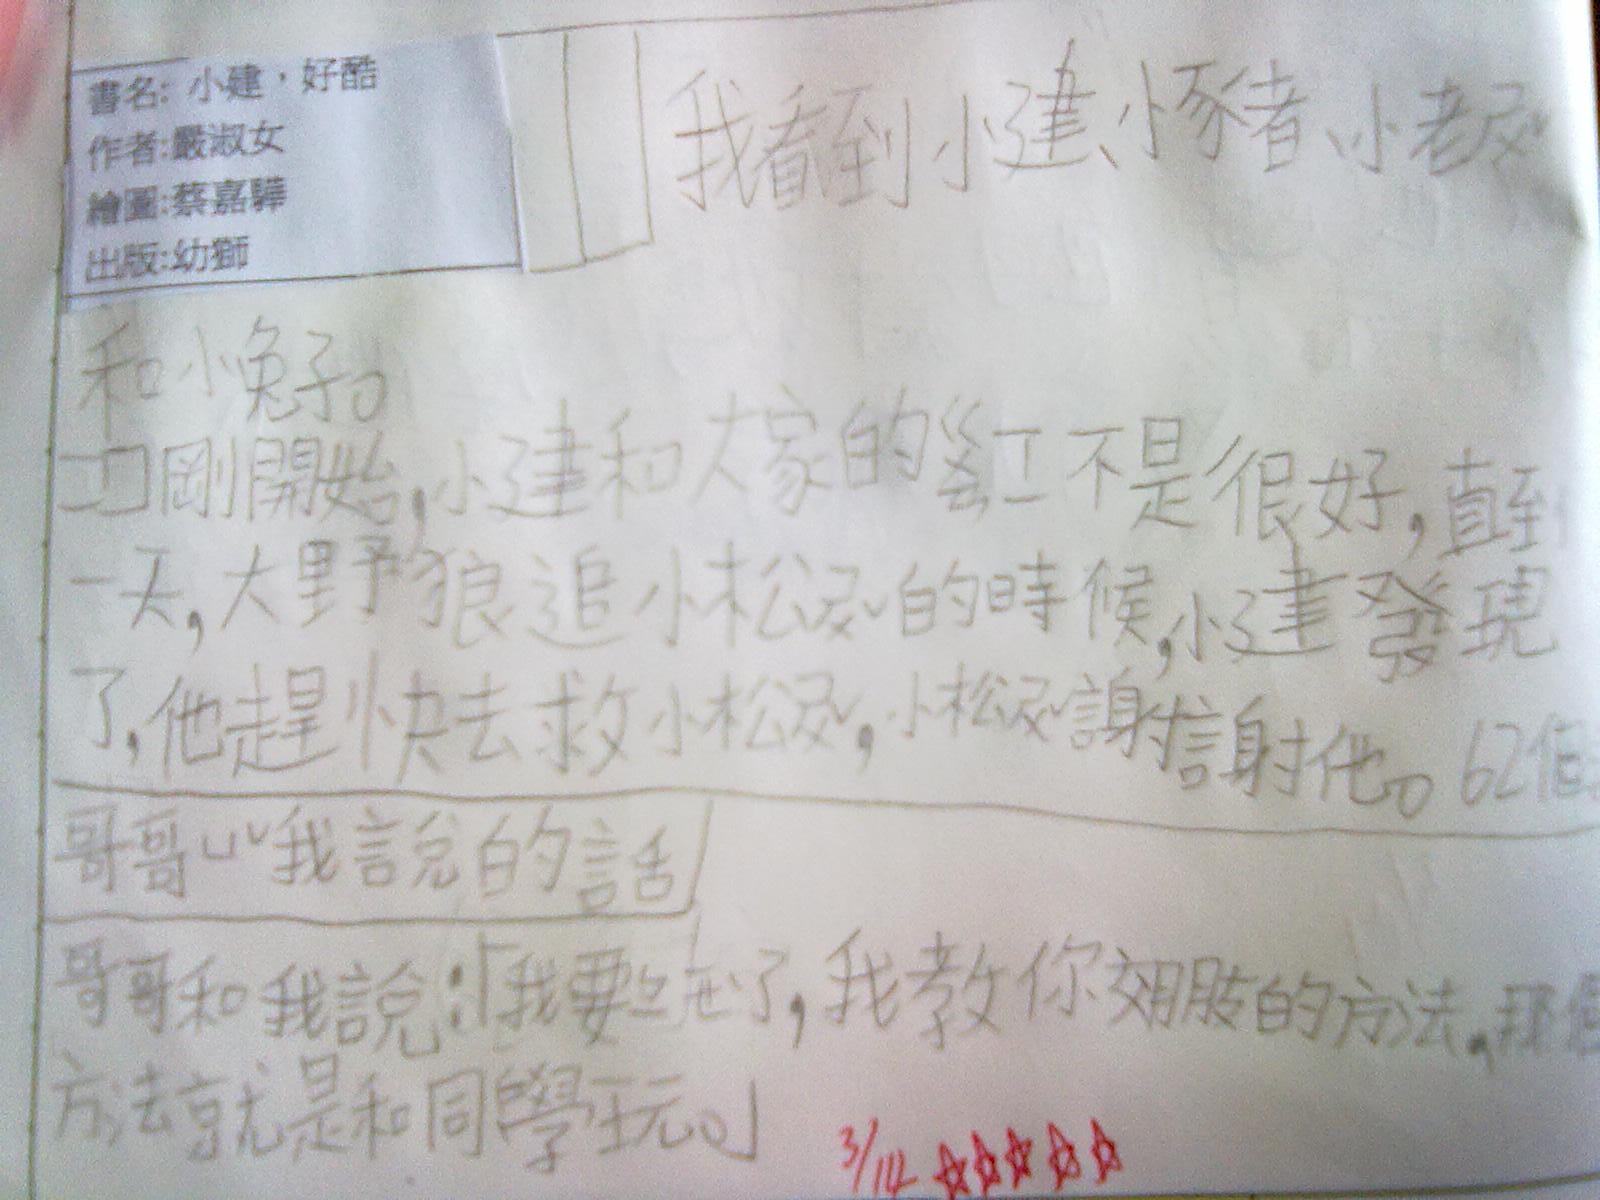 書名: 小建，好酷
作者:嚴淑女
繪圖:蔡嘉驊
出版:幼獅
我看到小建、小豬、小老鼠
和小兔子。
剛開始，小建和大家的 不是很好，直到
一天，大野狼追小松鼠的時候，小建發現
了，他趕快去救小松鼠，小松鼠謝謝他。62個
哥哥 我說的話
哥哥和我說：「我要 了，我教你 的方法，那個
方法就是和同學玩。」
3/14 ☆☆☆☆☆